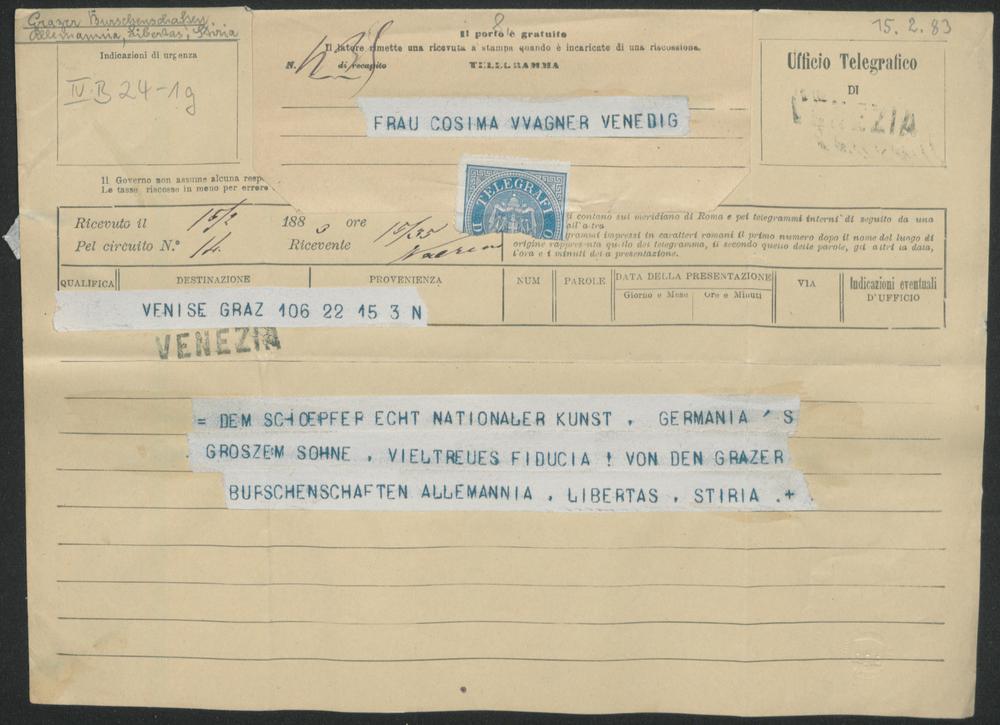 Grazer Burschenschaften
Allemannia, Libertas, Stiria
15.2.83
Indicazioni di urgenza
IV.B 24-19
8
Il porto è gratuito
Il latore rimette una ricevuta a stampa quando è incaricato di una riscossione.
N.
di recapito
TELEGRAMMA
Ufficio Telegrafico
DI
VENEZIA
FRAU COSIMA VVAGNER VENEDIG
TELEGRAFI
Il Governo non assume alcuna resp
Le tasse riscosse in meno per errore
Ricevuto il 15/2 1883 ore
Pel circuito N.° 14 Ricevente
si contano sul meridiano di Roma e pei telegrammi interni di seguito da una
all'altra
grammi impressi in caratteri romani il primo numero dopo il nome del luogo di
origine rappresenta quello del telegramma, il secondo quello delle parole, gli altri la data,
l'ora e i minuti della presentazione.
QUALIFICA
DESTINAZIONE
PROVENIENZA
NUM
PAROLE
DATA DELLA PRESENTAZIONE
Giorno e Mese
Ore e Minuti
VIA
Indicazioni eventuali
D'UFFICIO
VENISE GRAZ 106 22 15 3 N
VENEZIA
= DEM SCHOEPFER ECHT NATIONALER KUNST , GERMANIA ' S
GROSZEM SOHNE , VIELTREUES FIDUCIA ! VON DEN GRAZER
BURSCHENSCHAFTEN ALLEMANNIA , LIBERTAS , STIRIA .+